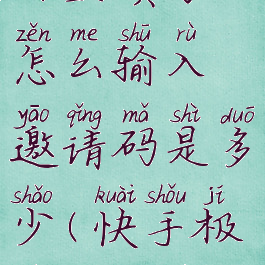 zěn me shū rù
怎么输入
yāo qǐng mǎ shì duō
邀请码是多
shǎo kuài shǒu jí
少(快手极